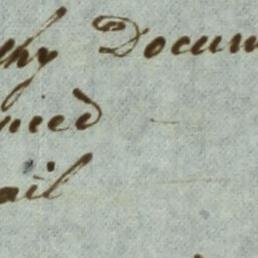 thy Docum
nced
ail